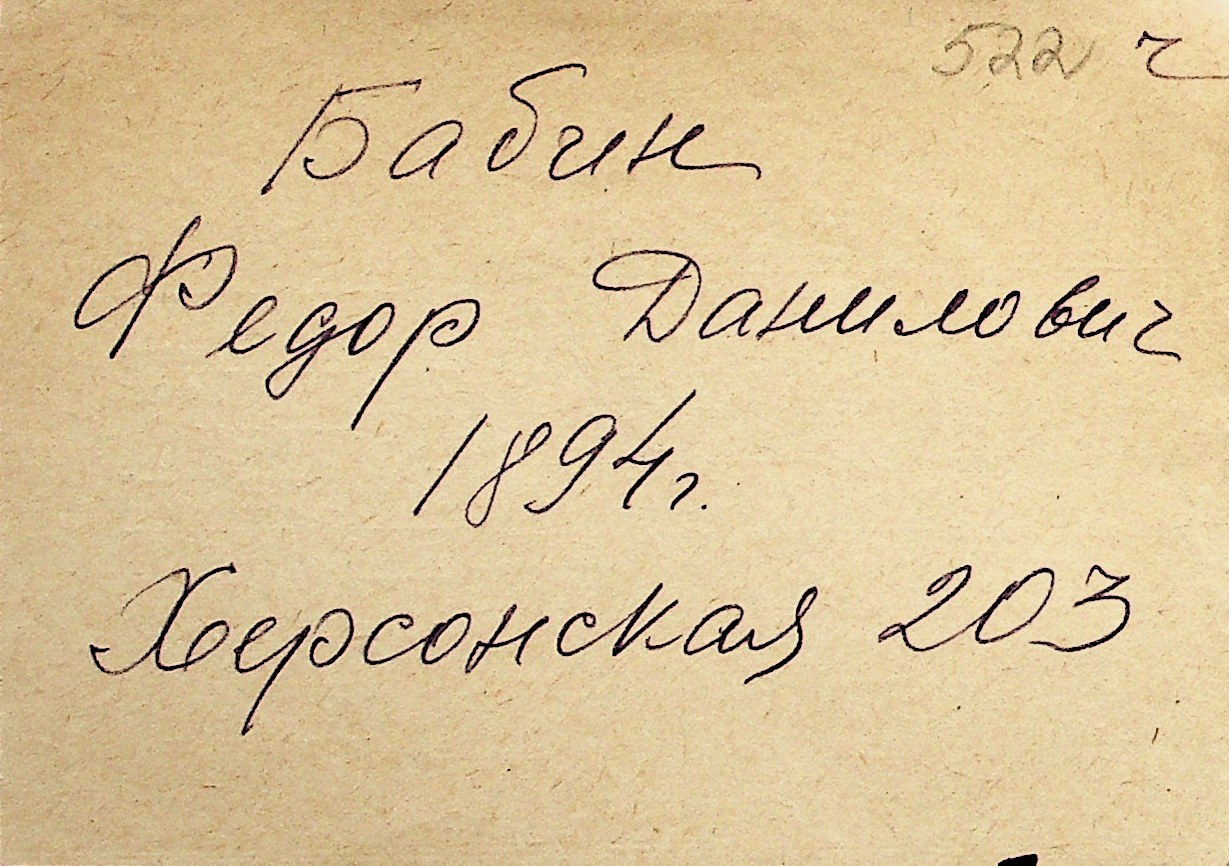 522 ч
Бабин
Федор Данилович
1894г.
Херсонская 203